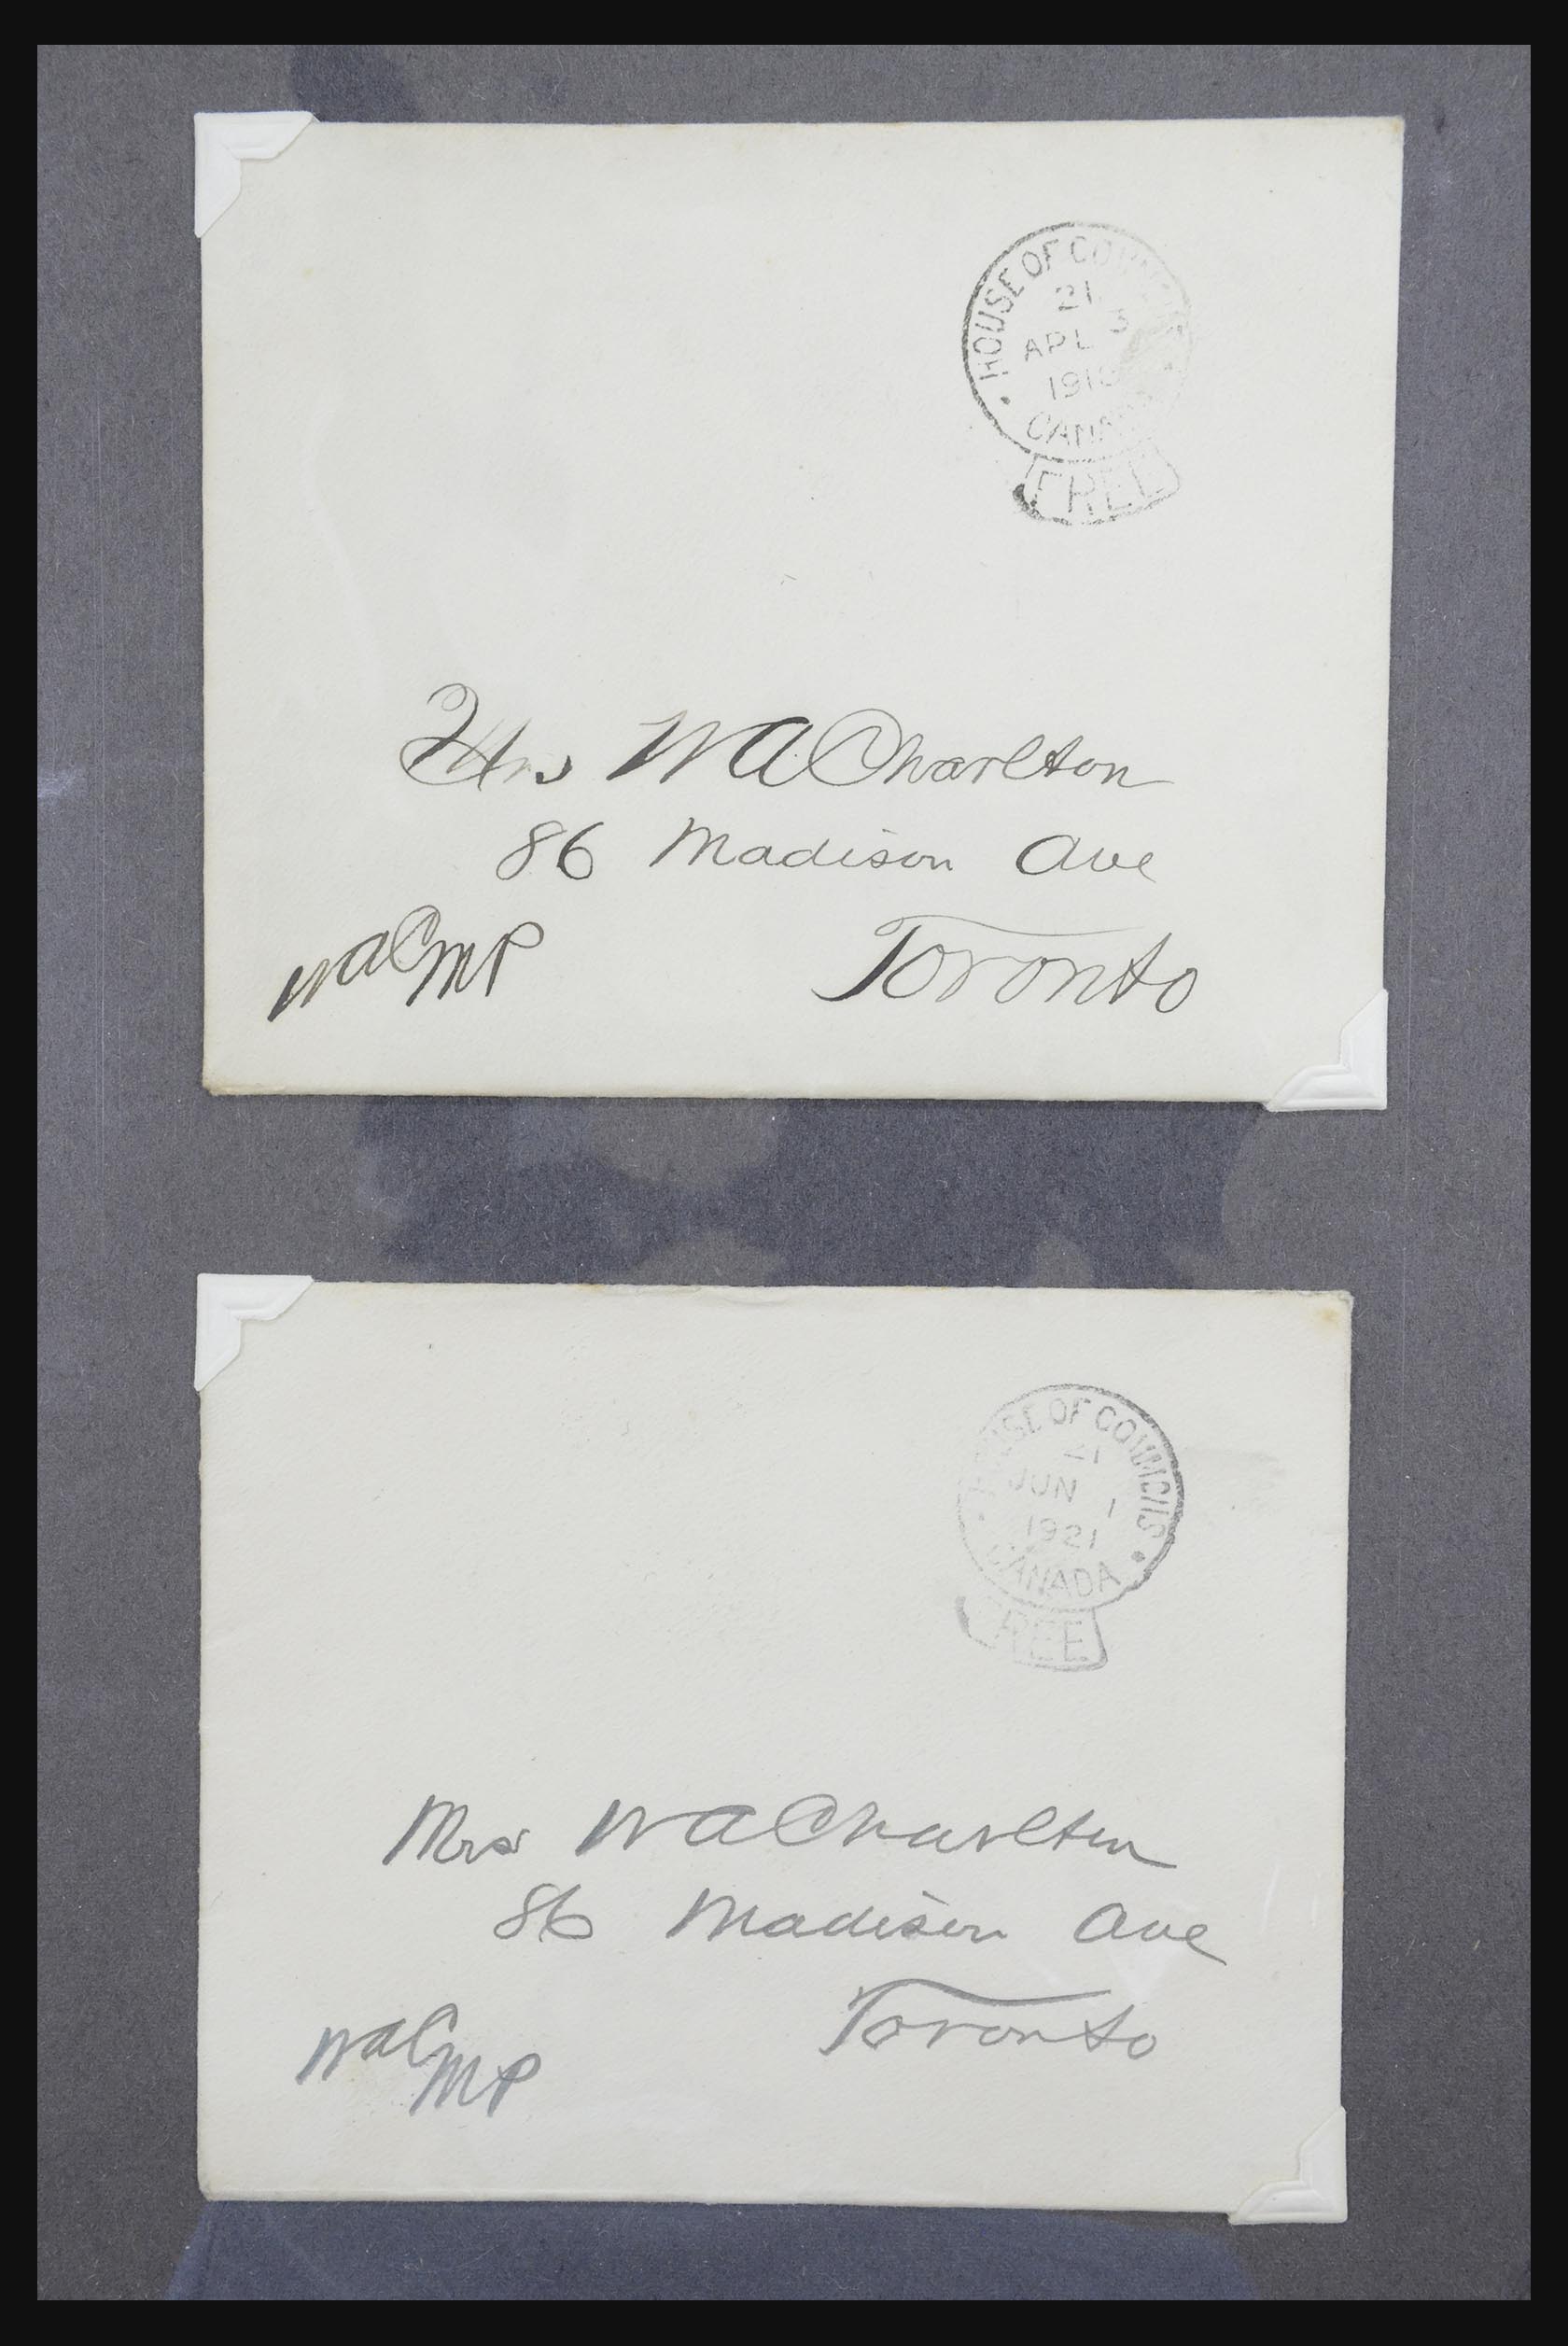 HOUSE OF COMMONS
21
APL 3
CANADA
FREE
Mrs WA Charlton
86 Madison Ave
WAC MP
Toronto
HOUSE OF COMMONS
21
JUN 1
1921
CANADA
FREE
Mrs WA Charlton
86 Madison Ave
Toronto
WAC MP